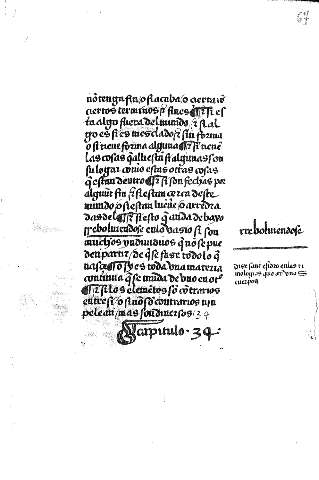 nō tenga fin / o si acaba / o çierta
çiertos terminos τ fines ¶ τ si es
ta algo fuera del mundo / τ si al
go es si es mesclado / τ sin forma
o si tiene forma alguna ¶ τ si tienē
las cosas q̄ alli estā si algunas son
su logar como estas otras cosas
que estan dentro ¶ τ si son fechas por
algunt fin / τ si estan çerca deste
mundo / o si estan lueñe / o arredra
das del ¶ τ si esto q̄ anda de baxo
rreboluiendose en lo vasio si son
muchos yndiuiduos q̄ nō se pue
den partir / de que se fase todo lo q̄
nasçe ¶ O sy es toda vna materia
continua que se muda de vno en otº
¶ τ si los elemētos sō cōtrarios
entre si / o si nō sō contrarios nin
pelean / mas son diuersos · 34
Capitulo · 34
rreboluiendose
dise sant esidro en las ti
cuerpos
67